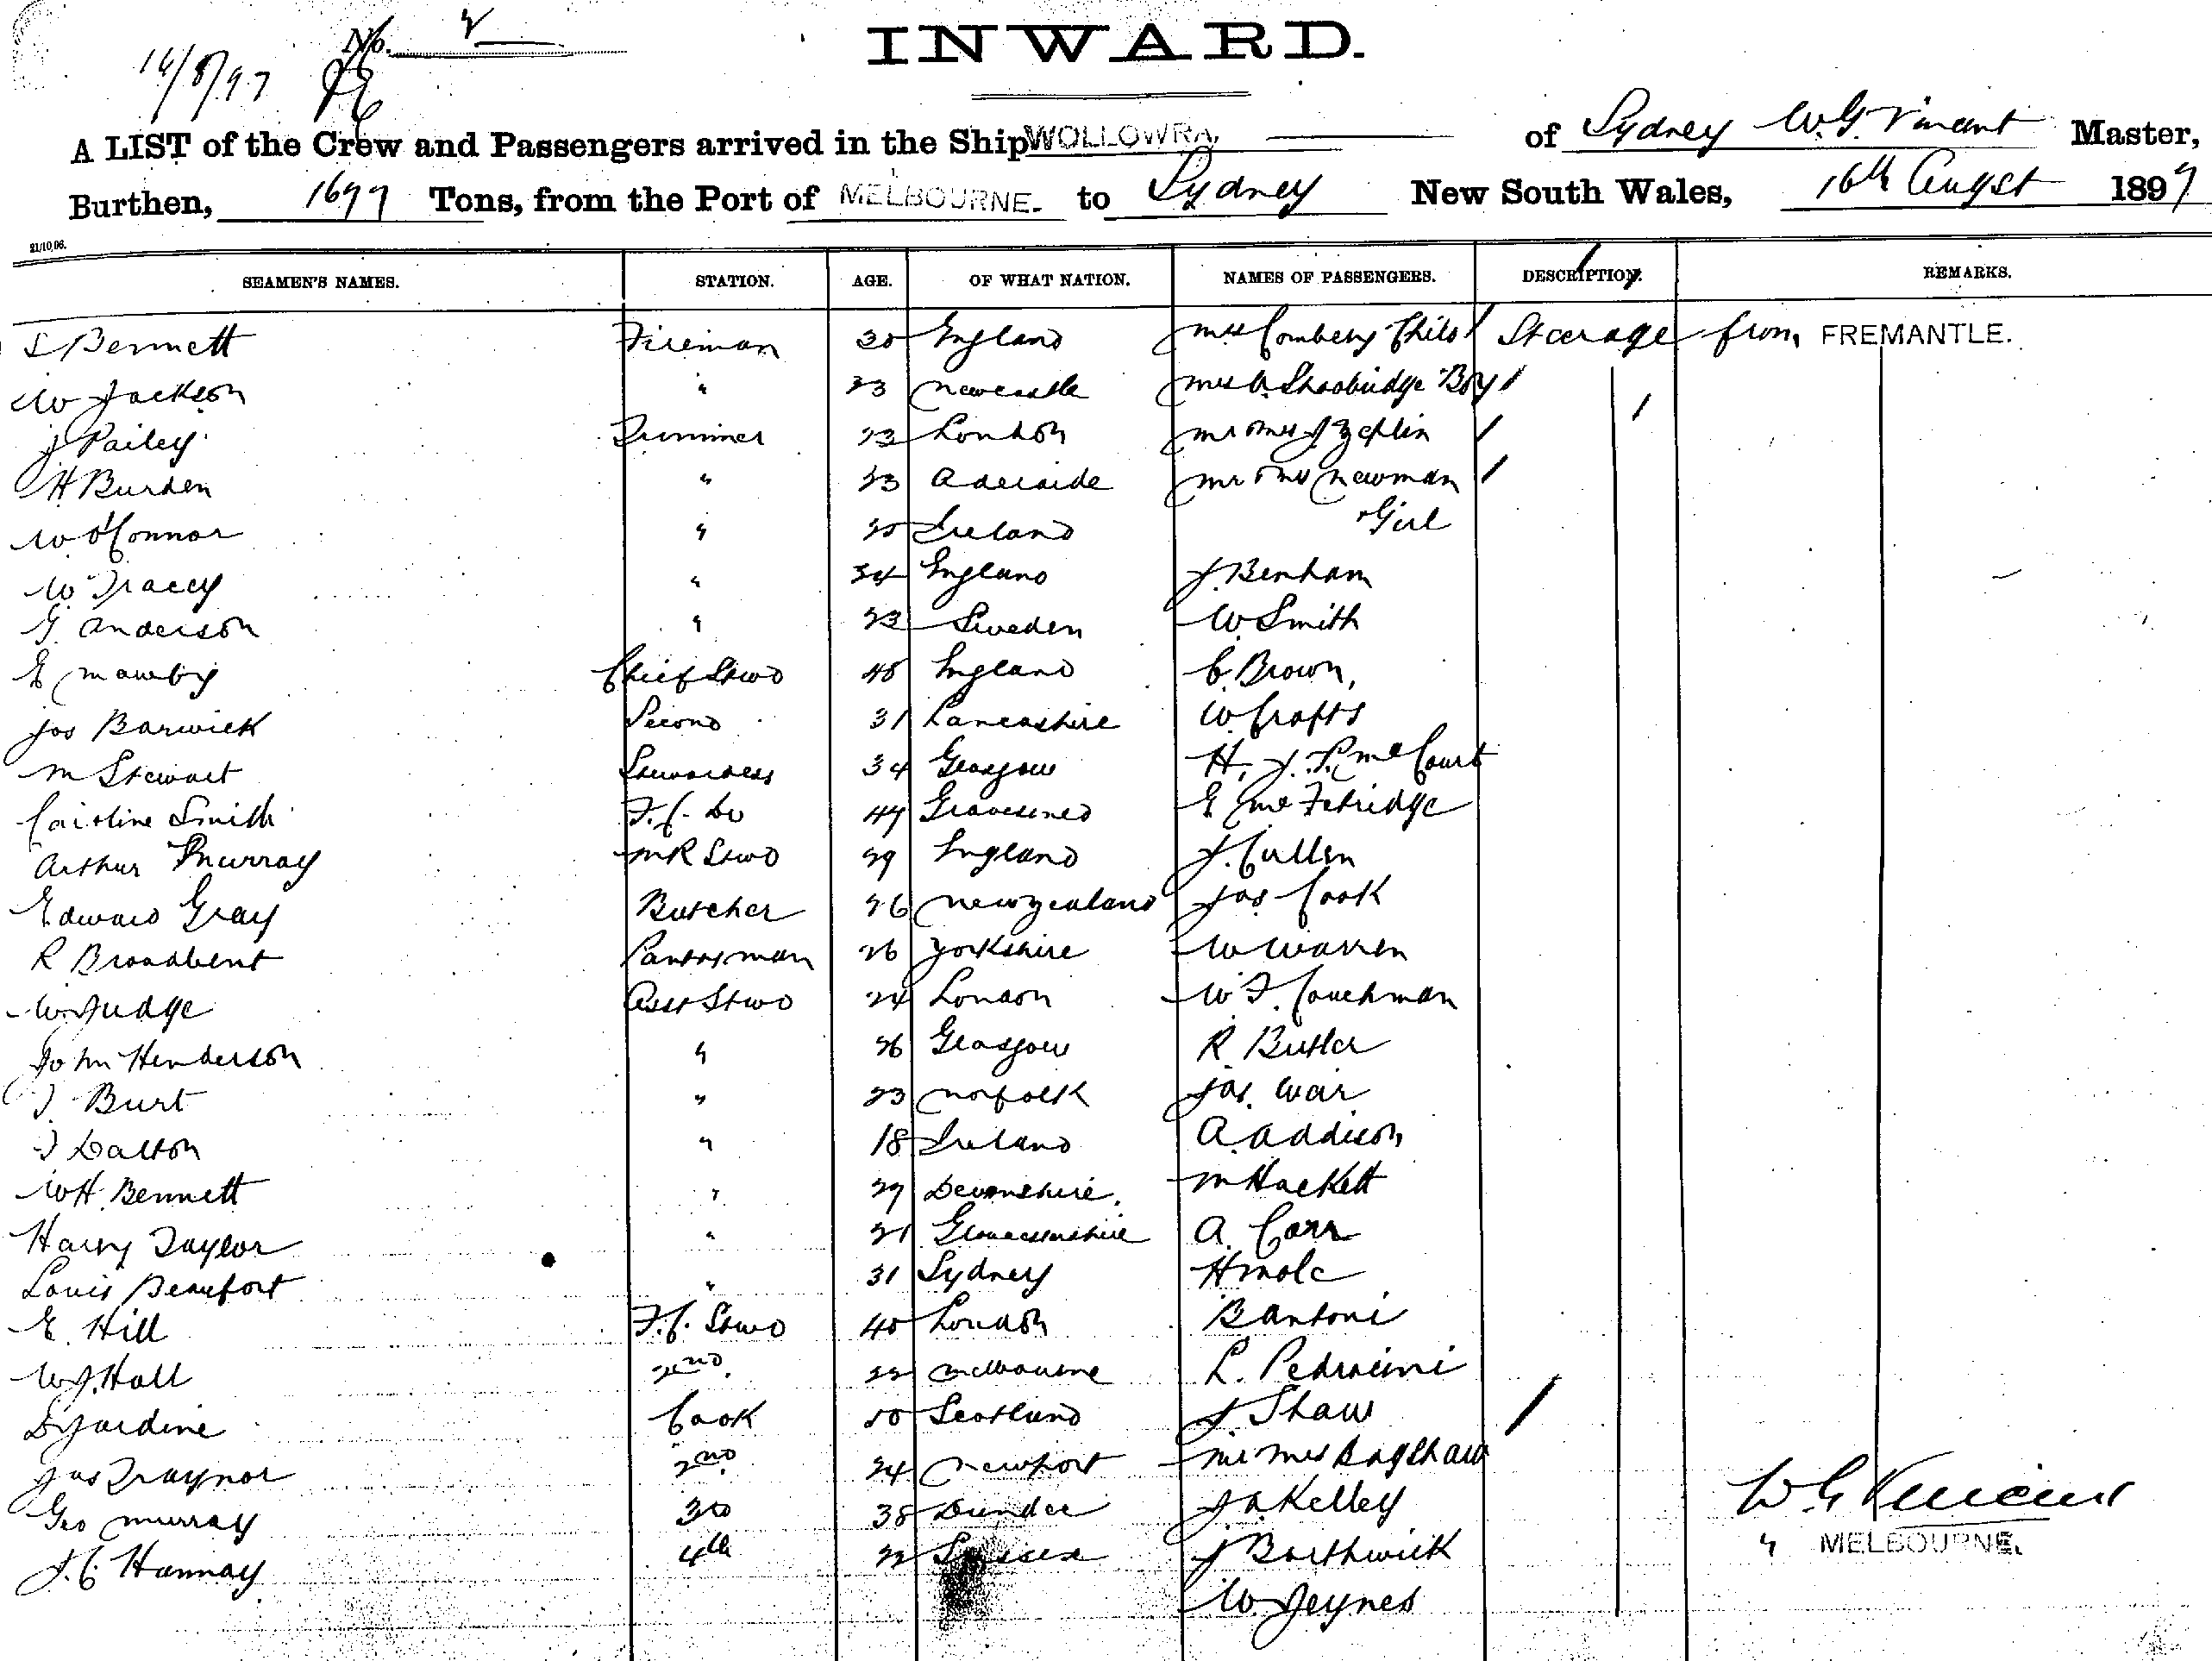 No. 2
16/8/97
INWARD.
A LIST of the Crew and Passengers arrived in the Ship WOLLOWRA, of Sydney W.G. Vincent Master,
Burthen, 1677 Tons, from the Port of MELBOURNE. to Sydney New South Wales, 16th Augst 1897
21/10/96.
SEAMEN'S NAMES. STATION. AGE. OF WHAT NATION. NAMES OF PASSENGERS. DESCRIPTION. REMARKS.
S Bennett Fireman 30 England Mrs Child Steerage from FREMANTLE.
W Jackson " 23 Newcastle Mrs Shoobridge Boy
J Pailey Trimmer 23 London Mr & Mrs J Zeplin
H Burden " 23 Adelaide Mr & Mrs Newman
W O'Connor " 25 Ireland & Girl
W Tracey " 34 England J. Benham
G. Anderson " 23 Sweden W Smith
E Mawby Chief Stwd 48 England C. Brown,
Jos Barwick Second 31 Lancashire W Crofts
M Stewart Stewardess 34 Glasgow H. J. P. McCourt
Caroline Smith F.C. Do 47 Gravesend E McFetridge
Arthur Murray M R Stwd 29 England J. Cullen
Edward Gray Butcher 26 New Zealand Jas Cook
R Broadbent Pantryman 26 Yorkshire W Warren
W Judge Asst Stwd 24 London W F. Couchman
John Henderson " 26 Glasgow R Butler
T. Burt " 23 Norfolk Jas. War
T Dalton " 18 Ireland A. Addison
W H. Bennett " 27 Devonshire. M Hackett
Harry Taylor " 21 Gloucestershire A. Carr
Louis Beaufort " 31 Sydney H Mole
E. Hill F.C. Stwd 40 London Bantoni
W J. Hall 2nd. 22 Melbourne L. Pedracini
D Jardine Cook 50 Scotland J Shaw
Jas Traynor 2nd 24 Newport Mr Mrs Bagshaw
Geo Murray 3rd 38 Dundee J A Kelley W G Vincent
J. C. Hannay 4th 22 Sussex J Borthwick " MELBOURNE.
W. Jeynes